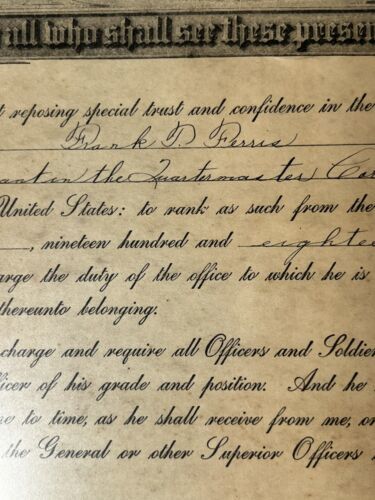 all who shall see these presen
t reposing special trust and confidence in the
Frank D. Ferris
ant in the Quartermaster Cor
United States: to rank as such from the
, nineteen hundred and eightee
arge the duty of the office to which he is
thereunto belonging.
charge and require all Officers and Soldie
ficer of his grade and position. And he
me to time, as he shall receive from me, or
the General or other Superior Officers